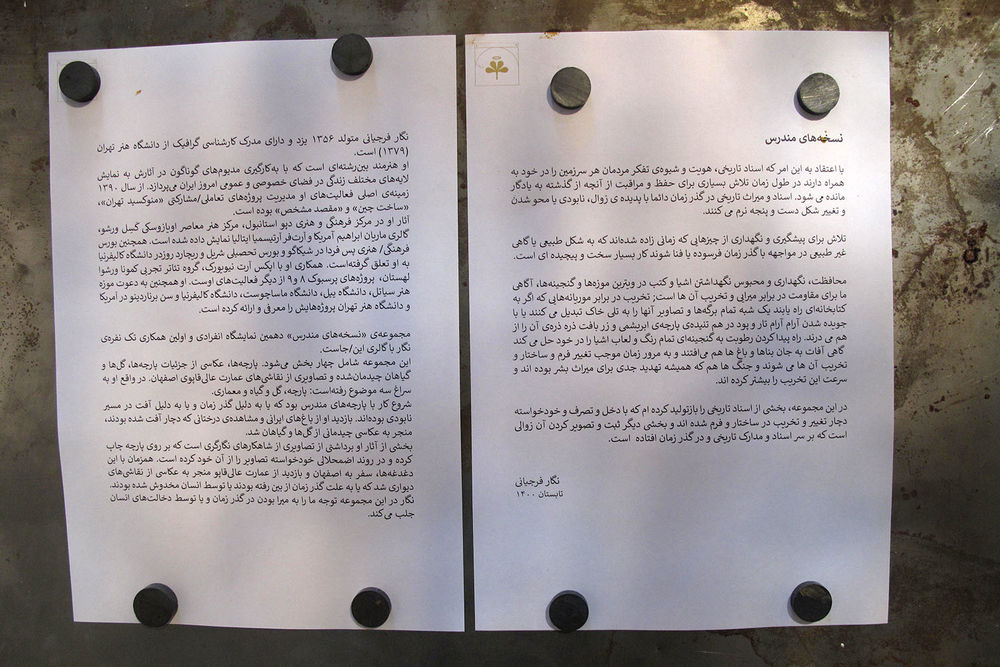 نسخه‌های مندرس
با اعتقاد به این امر که اسناد تاریخی، هویت و شیوه‌ی تفکر مردمان هر سرزمین را در خود به
همراه دارند در طول زمان تلاش بسیاری برای حفظ و مراقبت از آنچه از گذشته به یادگار
مانده می شود. اسناد و میراث تاریخی در گذر زمان دائما با پدیده ی زوال، نابودی یا محو شدن
و تغییر شکل دست و پنجه نرم می کنند.
تلاش برای پیشگیری و نگهداری از چیزهایی که زمانی زاده شده‌اند که به شکل طبیعی یا گاهی
غیر طبیعی در مواجهه با گذر زمان فرسوده یا فنا شوند کار بسیار سخت و پیچیده ای است.
محافظت، نگهداری و محبوس نگهداشتن اشیا و کتب در ویترین موزه‌ها و گنجینه‌ها، آگاهی
ما برای مقاومت در برابر میرایی و تخریب آن ها است؛ تخریب در برابر موریانه‌هایی که اگر به
کتابخانه‌ای راه یابند یک شبه تمام برگه‌ها و تصاویر آنها را به تلی خاک تبدیل می کنند یا با
جویده شدن آرام آرام تار و پود در هم تنیده‌ی پارچه‌ی ابریشمی و زر بافت ذره ذره‌ی آن را از
هم می درند. راه پیدا کردن رطوبت به گنجینه‌ای تمام رنگ و لعاب اشیا را در خود حل می کند
گاهی آفات به جان بناها و باغ ها هم می‌افتند و به مرور زمان موجب تغییر فرم و ساختار و
تخریب آن ها می شوند و جنگ ها هم که همیشه تهدید جدی برای میراث بشر بوده اند و
سرعت این تخریب را بیشتر کرده اند.
در این مجموعه، بخشی از اسناد تاریخی را بازتولید کرده ام که با دخل و تصرف و خودخواسته
دچار تغییر و تخریب در ساختار و فرم شده اند و بخشی دیگر ثبت و تصویر کردن آن زوالی
است که بر سر اسناد و مدارک تاریخی و در گذر زمان افتاده است.
نگار فرجیانی
تابستان ۱۴۰۰
نگار فرجیانی متولد ۱۳۵۶ یزد و دارای مدرک کارشناسی گرافیک از دانشگاه هنر تهران
(۱۳۷۹) است.
او هنرمند بین‌رشته‌ای است که با به‌کارگیری مدیوم‌های گوناگون در آثارش به نمایش
لایه‌های مختلف زندگی در فضای خصوصی و عمومی امروز ایران می‌پردازد. از سال ۱۳۹۰
زمینه‌ی اصلی فعالیت‌های او مدیریت پروژه‌های تعاملی/مشارکتی «منوکسید تهران»،
«ساخت چین» و «مقصد مشخص» بوده است.
آثار او در مرکز فرهنگی و هنری دپو استانبول، مرکز هنر معاصر اویازوسکی کسل ورشو،
گالری ماریان ابراهیم آمریکا و آرت‌فر آرتیسمیا ایتالیا نمایش داده شده است. همچنین بورس
فرهنگی/ هنری پس فردا در شیکاگو و بورس تحصیلی شریل و ریچارد روزدر دانشگاه کالیفرنیا
به او تعلق گرفته‌است. همکاری او با اپکس آرت نیویورک، گروه تئاتر تجربی کمونا ورشوا
لهستان، پروژه‌های پرسبوک ۸ و ۹ از دیگر فعالیت‌های اوست. او همچنین به دعوت موزه
هنر سیاتل، دانشگاه ییل، دانشگاه ماساچوست، دانشگاه کالیفرنیا و سن برناردینو در آمریکا
و دانشگاه هنر تهران پروژه‌هایش را معرفی و ارائه کرده است.
مجموعه‌ی «نسخه‌های مندرس» دهمین نمایشگاه انفرادی و اولین همکاری تک نفره‌ی
نگار با گالری این/جاست.
این مجموعه شامل چهار بخش می‌شود. پارچه‌ها، عکاسی از جزئیات پارچه‌ها، گل‌ها و
گیاهان چیدمان‌شده و تصاویری از نقاشی‌های عمارت عالی‌قاپوی اصفهان. در واقع او به
سراغ سه موضوع رفته‌است: پارچه، گل و گیاه و معماری.
شروع کار با پارچه‌های مندرس بود که یا به دلیل گذر زمان و یا به دلیل آفت در مسیر
نابودی بوده‌اند. بازدید او از باغ‌های ایرانی و مشاهده‌ی درختانی که دچار آفت شده بودند،
منجر به عکاسی چیدمانی از گل‌ها و گیاهان شد.
بخشی از آثار او برداشتی از تصاویری از شاهکارهای نگارگری است که بر روی پارچه چاپ
کرده و در روند اضمحلالی خودخواسته تصاویر را از آن خود کرده است. همزمان با این
دغدغه‌ها، سفر به اصفهان و بازدید از عمارت عالی‌قاپو منجر به عکاسی از نقاشی‌های
دیواری شد که یا به علت گذر زمان از بین رفته بودند یا توسط انسان مخدوش شده بودند.
نگار در این مجموعه توجه ما را به میرا بودن در گذر زمان و یا توسط دخالت‌های انسان
جلب می‌کند.